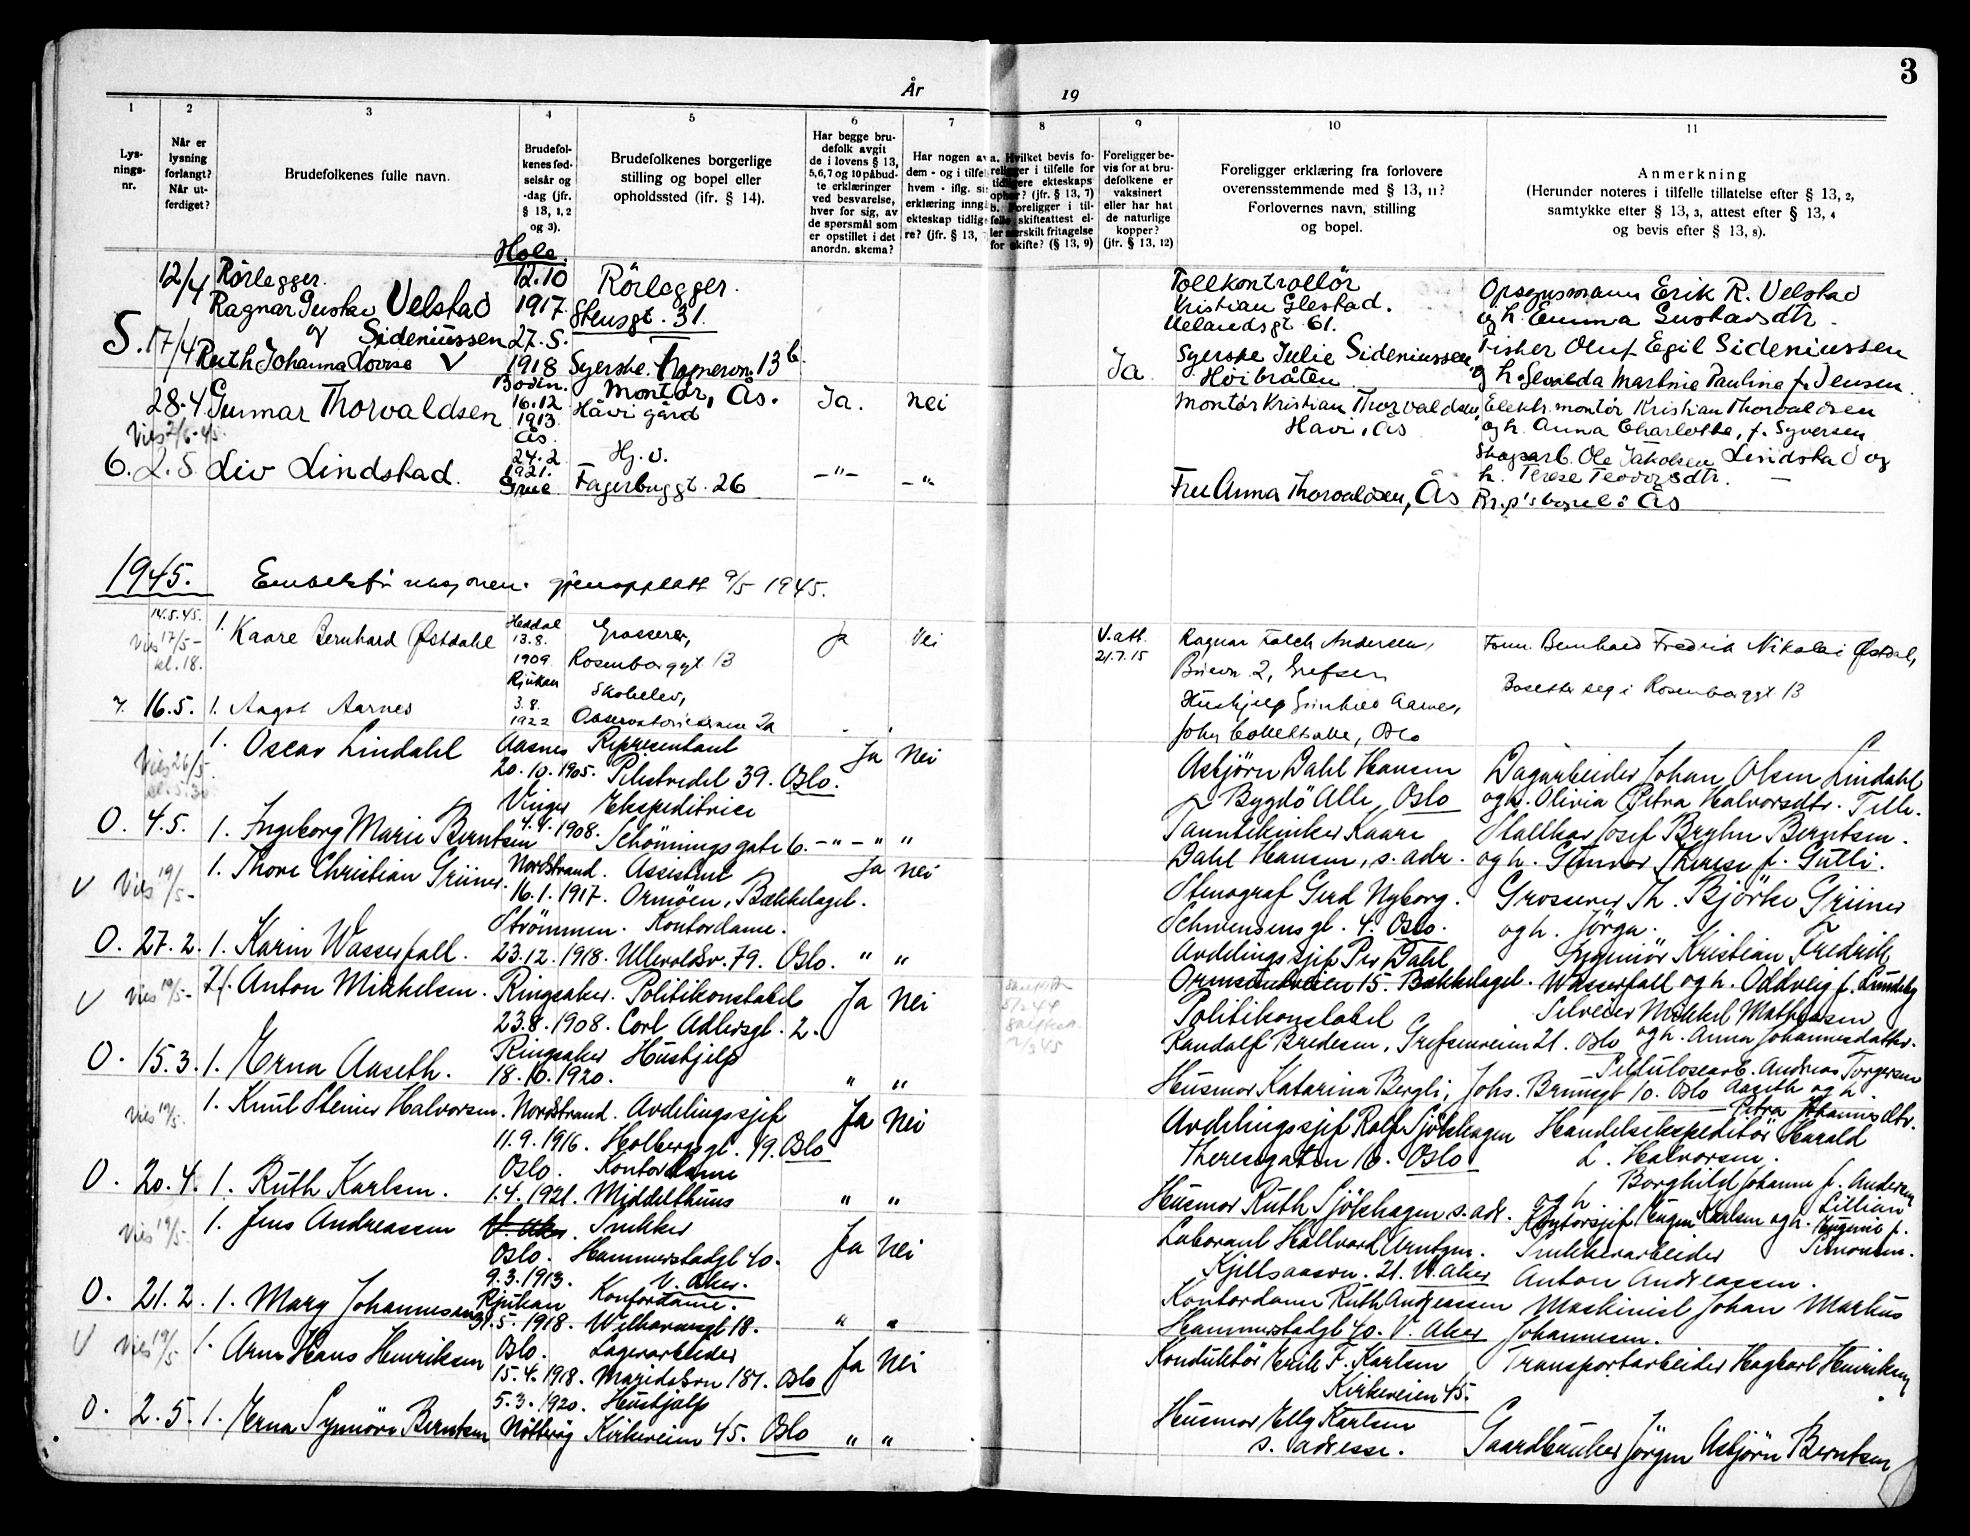 3
År
19
1
2
3
4
5
6
7
8
9
10
11
Lys-
nings-
nr.
Når er
lysning
forlangt?
Når ut-
ferdiget?
Brudefolkenes fulle navn.
Brudefol-
kenes fød-
selsår og
-dag (jfr.
§ 13, 1, 2
og 3).
Brudefolkenes borgerlige
stilling og bopel eller
opholdssted (ifr. § 14).
Har begge bru-
defolk avgit
de i lovens § 13,
5,6,7 og 10 påbud-
te erklæringer
ved besvarelse,
hver for sig, av
de spørsmål som
er opstillet i det
anordn. skema?
Har nogen av
dem - og i tilfel
hvem - iflg. si
erklæring inng
ekteskap tidlig
re? (jfr. § 13,
a. Hvilket bevis fo-
religger i tilfelle for
tidligere ekteskaps
ophør? (jfr. § 13, 7)
b. Foreligger i til-
felle skifteattest el-
ler særskilt fritagelse
for skifte? (§ 13, 9)
Foreligger be-
vis for at bru-
defolkene er
vaksinert
eller har hat
de naturlige
kopper?
(jfr. § 13, 12)
Foreligger erklæring fra forlovere
overensstemmende med § 13, 11?
Forlovernes navn, stilling
og bopel.
Anmerkning
(Herunder noteres i tilfelle tillatelse efter § 13, 2,
samtykke efter § 13, 3, attest efter § 13, 4
og bevis efter § 13, 8).
12/4 Rörlegger. Hole. 12.10 Rörlegger. Tollkontrollör
Ragnar Gustav Velstad 1917 Stensgt. 31. Kristian Glestad. Erik R. Velstad
Uelandsgt. 61. og h. Emma Gustavsdtr.
5. 17/4 Sideniussen 27.5. Syerske Julie Sideniussen Fisker Oluf Egil Sideniussen
Ruth Johanna Lovise V 1918 Syerske. 13b. Ja Høibråten og h. Martine Pauline f. Jensen
28.4 Gunnar Thorvaldsen Bodin. 16.12 1913 Montør, Ås. Ja. nei Montør Kristian Thorvaldsen, Elektr. montör Kristian Thorvaldsen
Vies 2/6-45. Ås Håvi gård Havi, Ås og h. Anna Charlotte, f. Syversen
6. 2.5. Liv Lindstad. 24.2 1921. Grue Hj. v. Fagerbuggt. 26 -"- -" Fru Anna Thorvaldsen, Ås Ole Jakobsen Lindstad og
h. Terese Teodorsdtr.
Br.p's bopel: Ås
1945. gjenopptatt 9/5 1945.
14.5.45. 1. Kaare Bernhard Østdahl Heddal 13.8. 1909 Grosserer, Rosenborggt 13 Ja Nei V.att. 21.7.15 Ragnar Falch Andersen, Bernhard Fredrik Nikolai Østdal,
Vies 17/5- kl. 18. 2, Grefsen Bosetter seg i Rosenborggt 13
7. 16.5. 1. Aagot Aarnes Rjukan 3.8. 1922 Aarnes,
John Colletts alle, Oslo
1. Oscar Lindahl Aasnes Representant Ja Nei Asbjörn Dahl Hansen Dagarbeider Johan Olsen Lindahl
Vies 26/5 20.10.1905. Pilestredet 39. Oslo. Bygdö Alle, Oslo og h. Olivia Petra Halvorsdtr.
O. 4.5. 1. Ingeborg Marie Berntsen Vinger Ekspeditrice Tanntekniker Kaare Stallkar Josef Berntsen.
4.4.1908. Schönningsgate 6. -"- " " Dahl Hansen, s. adr. og h. Gunvor Therese f. Gulli.
V Vies 19/5- 1. Thore Christian Grüner Nordstrand. Assistent Ja Nei Stenograf Gerd Nyborg. Grosserer Th. Björke Grüner
16.1.1917. Ormöen, Bækkelaget. Schwensensgt. 4. Oslo. og h. Jörga.
O. 27.2. 1. Karin Wasserfall. Strömmen. Kontordame. Avdelingssjef Per Dahl Ingeniör Kristian Fredrik
23.12.1918. Ullevoldsv. 79. Oslo. " " Ormsundveien 15. Bækkelaget. Wasserfall og h. Oddveig f. Lundeby
V Vies 19/5- Anton Mikkelsen. Ringsaker. Politikonstabel Ja Nei Politikonstabel Mikkel Mathiassen
23.8.1908. Carl Adlersgt. 2. Randolf Bredesen, Grefsenveien 21. Oslo og h. Anna Johannesdatter.
O. 15.3. 1. Erna Aaseth. Ringsaker Hushjelp Celulosearb. Andreas Torgersen
18.10.1920. " " Husmor Katarina Bergli, Johs. Brunsgt 10. Oslo Aaseth og h.
Petra Johannesdtr.
Vies 19/5. 1. Knut Steiner Halvorsen. Nordstrand. Avdelingssjef Ja Nei Avdelingssjef Rolf Sjölshagen Handelsekspeditör Harald
11.9.1916. Holbergsgt. 19. Oslo Theresegaten 16. Oslo L. Halvorsen.
og h Borghild Johanne f. Andersen
O. 20.4. 1. Ruth Karlsen. Oslo. Kontordame
1.4.1921. Middelthuns " " Husmor Ruth Sjölshagen s. adr. Kontorsjef Eugen Karlsen og h. Eugenie f. Lillian
Simonsen.
Vies 19/5. 1. Jens Andreassen V. Aker. Snekker Ja Nei Laborant Hallvard Snekkerarbeider
Oslo. Hammerstadgt 40. 21. V. Aker Anton Andreassen.
9.3.1913. V. Aker.
O. 21.2. 1. Mary Johannesen Rjukan Kontordame. Kontordame Ruth Andreassen Maskinist Johan Markus
31.5.1918. Welhavensgt 18. " " Hammerstadgt 40. V. Aker Johannesen.
V Vies 19/5 1. Arne Hans Henriksen Oslo. Lagerarbeider Ja Nei Konduktör Erik F. Karlsen Transportarbeider Hagbart Henriksen
15.4.1918. Maridalsvn 187. Oslo Kirkeveien 45.
O. 2.5. 1. Erna Synnöve Berntsen 5.3.1920. Hushjelp Husmor Elly Karlsen
Nötteröy Kirkeveien 45. Oslo " " s. adresse. Gaardbruker Jörgen Asbjörn Berntsen